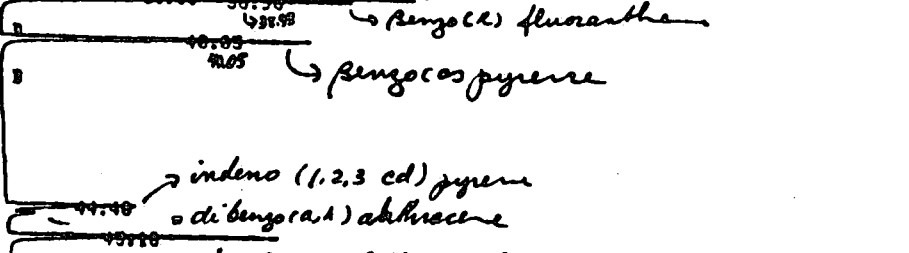 38.93 Benzo(k) fluoranthene
40.05
40.05 Benzo(a) pyrene
indeno (1,2,3 cd) pyrene
44.40
dibenzo(a,h) anthracene